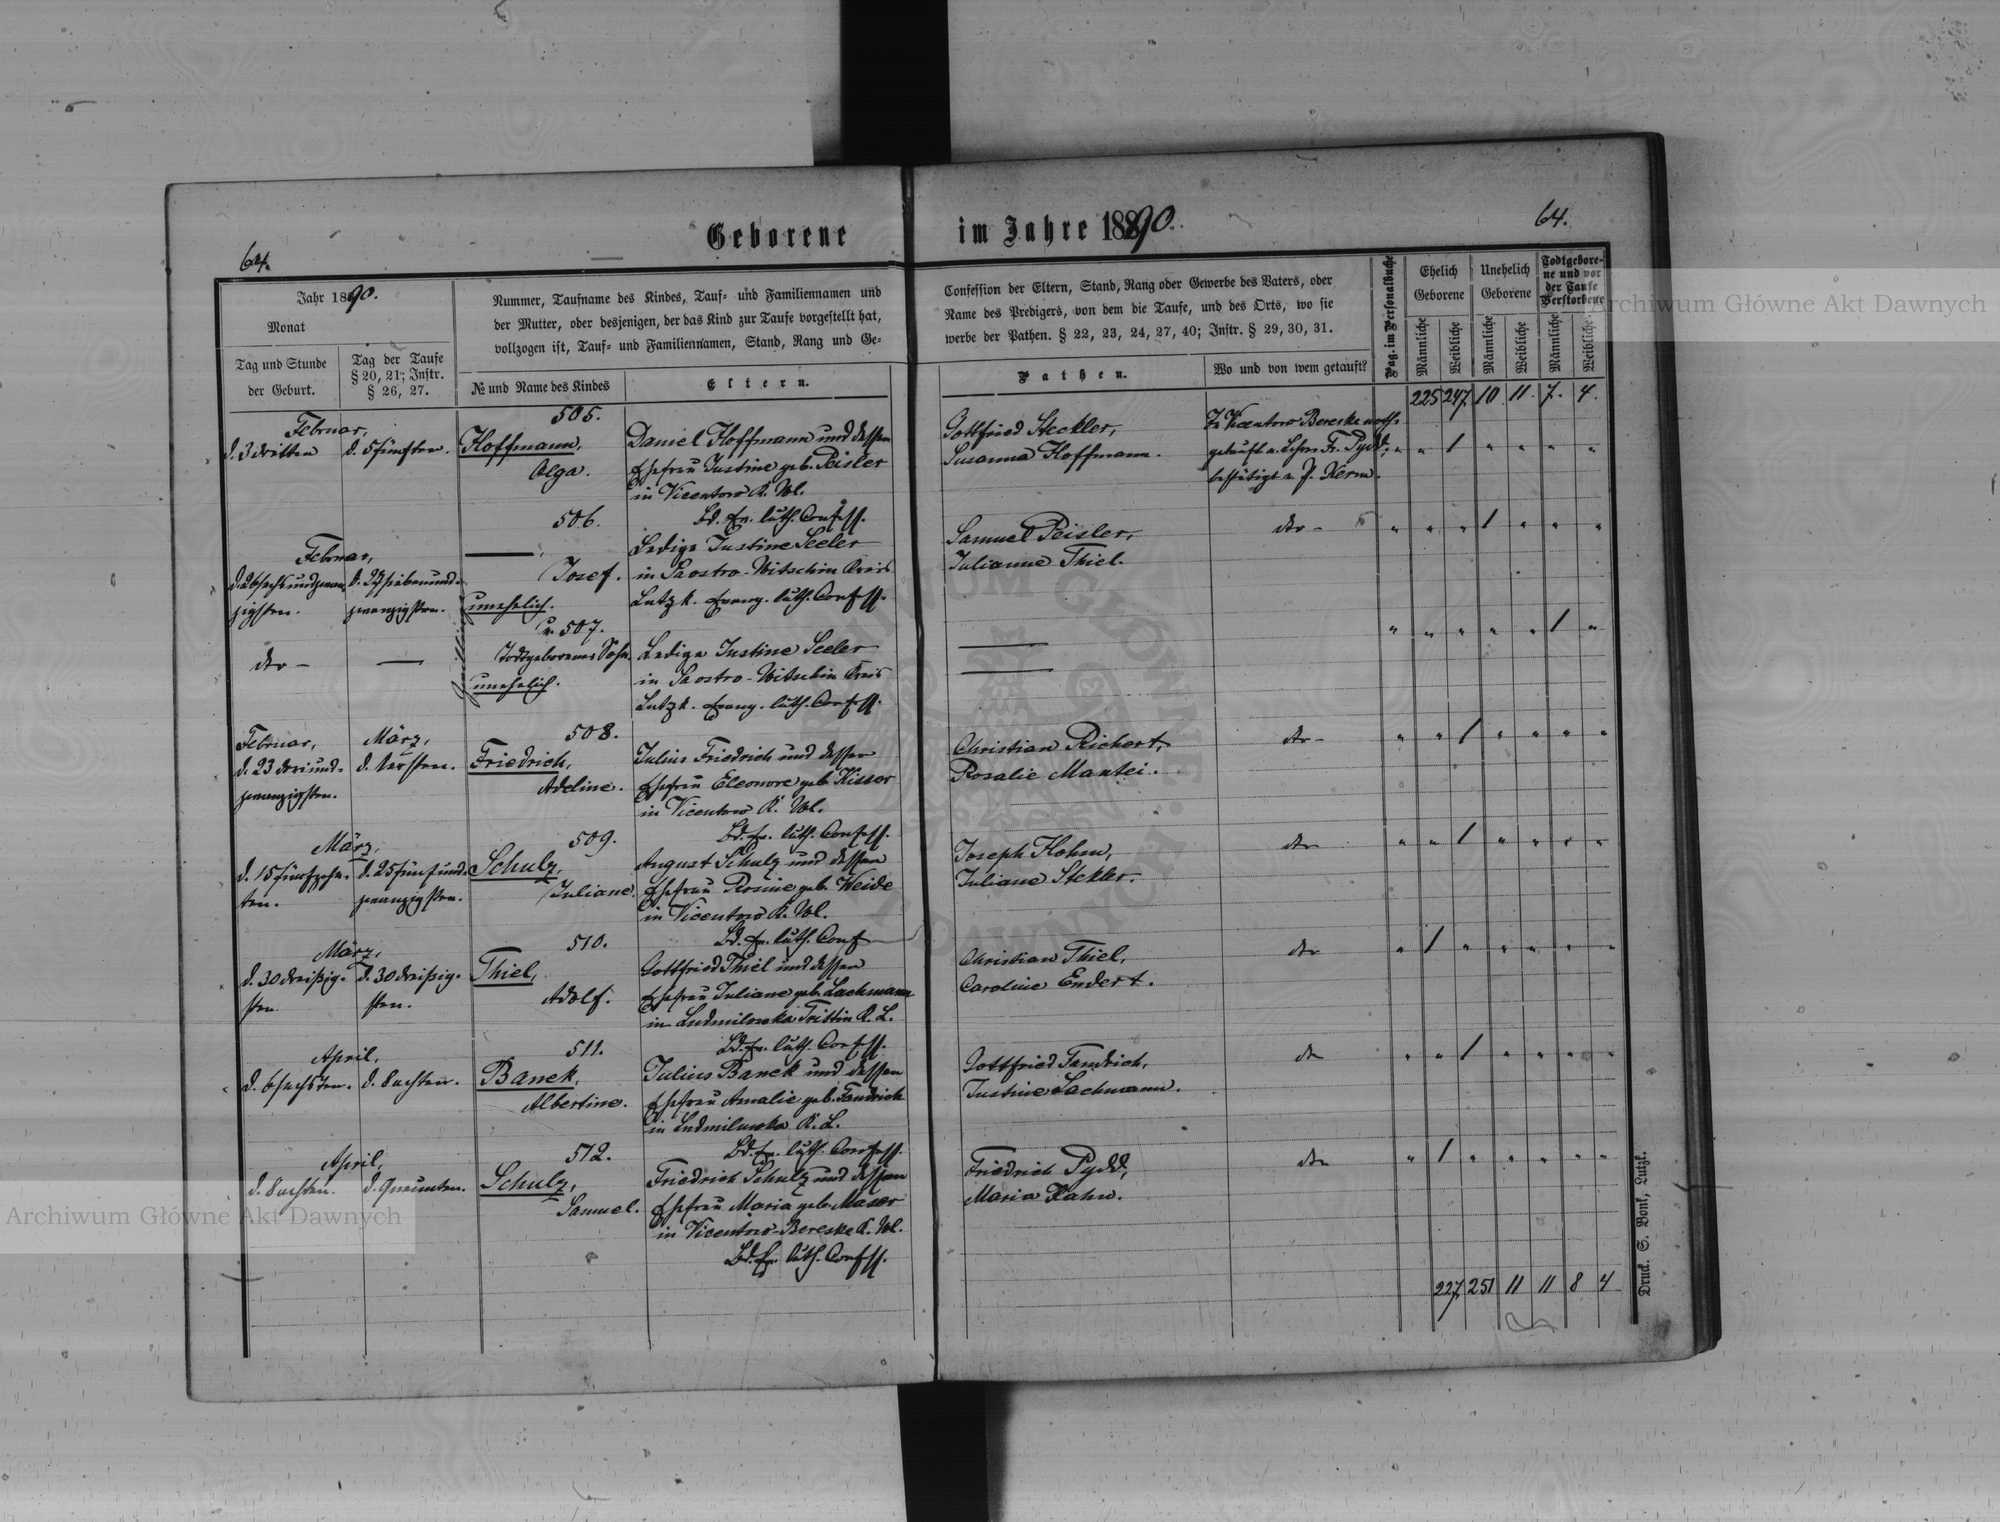 64.
Geborene
im Jahre 1890.
64.
Jahr 1890.
Monat
Tag und Stunde
der Geburt.
Tag der Taufe
§ 20, 21; Instr.
§ 26, 27.
Nummer, Taufname des Kindes, Tauf- und Familiennamen und
der Mutter, oder desjenigen, der das Kind zur Taufe vorgestellt hat,
vollzogen ist, Tauf- und Familiennamen, Stand, Rang und Ge-
№ und Name des Kindes
Eltern.
Confession der Eltern, Stand, Rang oder Gewerbe des Vaters, oder
Name des Predigers, von dem die Taufe, und des Orts, wo sie
werbe der Pathen. § 22, 23, 24, 27, 40; Instr. § 29, 30, 31.
Pathen.
Wo und von wem getauft?
Pag. im Personalbuche
Ehelich
Geborene
Unehelich
Geborene
Todtgebore-
ne und vor
der Taufe
Verstorbene
Männliche
Weibliche
Männliche
Weibliche
Männliche
Weibliche
225 247. 10. 11. 7. 4.
Februar,
d. 3 dritten
d. 5 fünften.
505.
Hoffmann,
Olga.
Daniel Hoffmann und dessen
Ehefrau Justine geb. Peisler
in Vicentow K. Wl.
Bd. Ev. luth. Confess.
Gottfried Steckler,
Susanna Hoffmann.
Zu Vicentow Bereske noth-
getauft v. Lehrer Fr. Pydd,
bestätigt v. P. Kerm.
" " 1 " " " "
Februar,
d. 26 sechsundzwan-
zigsten.
d. 27 siebenund-
zwanzigsten.
506.
Josef.
unehelich.
Ledige Justine Seeler
in Saostro-Witschin Kreis
Lutzk. Evang. luth. Confess.
Samuel Peisler,
Julianne Thiel.
dto -
" " " 1 " " "
dto -
Zwillinge
u. 507.
Todtgeborener Sohn.
unehelich.
Ledige Justine Seeler
in Saostro-Witschin Kreis
Lutzk. Evang. luth. Confess.
" " " " " 1 "
Februar,
d. 23 dreiund-
zwanzigsten.
März,
d. 1 ersten.
508.
Friedrich,
Adeline.
Julius Friedrich und dessen
Ehefrau Eleonore geb. Kisser
in Vicentow K. Wl.
Bd. Ev. luth. Confess.
Christian Richert,
Rosalie Mantei.
dto -
" " 1 " " " "
März,
d. 15 fünfzehn-
ten.
d. 25 fünfund-
zwanzigsten.
509.
Schulz,
Juliane.
August Schulz und dessen
Ehefrau Rosine geb. Weide
in Vicentow K. Wl.
Bd. Ev. luth. Conf
Joseph Hohm,
Juliane Stekler.
dto
" " 1 " " " "
März,
d. 30 dreißig-
sten.
d. 30 dreißig-
sten.
510.
Thiel,
Adolf.
Gottfried Thiel und dessen
Ehefrau Juliane geb. Lachmann
in Ludmilowka Tristin K. L.
Bd. Ev. luth. Confess.
Christian Thiel,
Caroline Endert.
dto
" 1 " " " " "
April,
d. 6 sechsten.
d. 8 achten.
511.
Banek,
Albertine.
Julius Banek und dessen
Ehefrau Amalie geb. Fandrich
in Ludmilowka K. L.
Bd. Ev. luth. Confess.
Gottfried Fandrich,
Justine Lachmann.
dto
" " 1 " " " "
April,
d. 8 achten.
d. 9 neunten.
512.
Schulz,
Samuel.
Friedrich Schulz und dessen
Ehefrau Maria geb. Maser
in Vicentow-Bereske K. Wl.
Bd. Ev. luth. Confess.
Friedrich Pydd,
Maria Hahn.
dto
" 1 " " " " "
227. 251 11 11 8 4
Druck. S. Bonk, Lutzk.
Archiwum Główne Akt Dawnych
Archiwum Główne Akt Dawnych